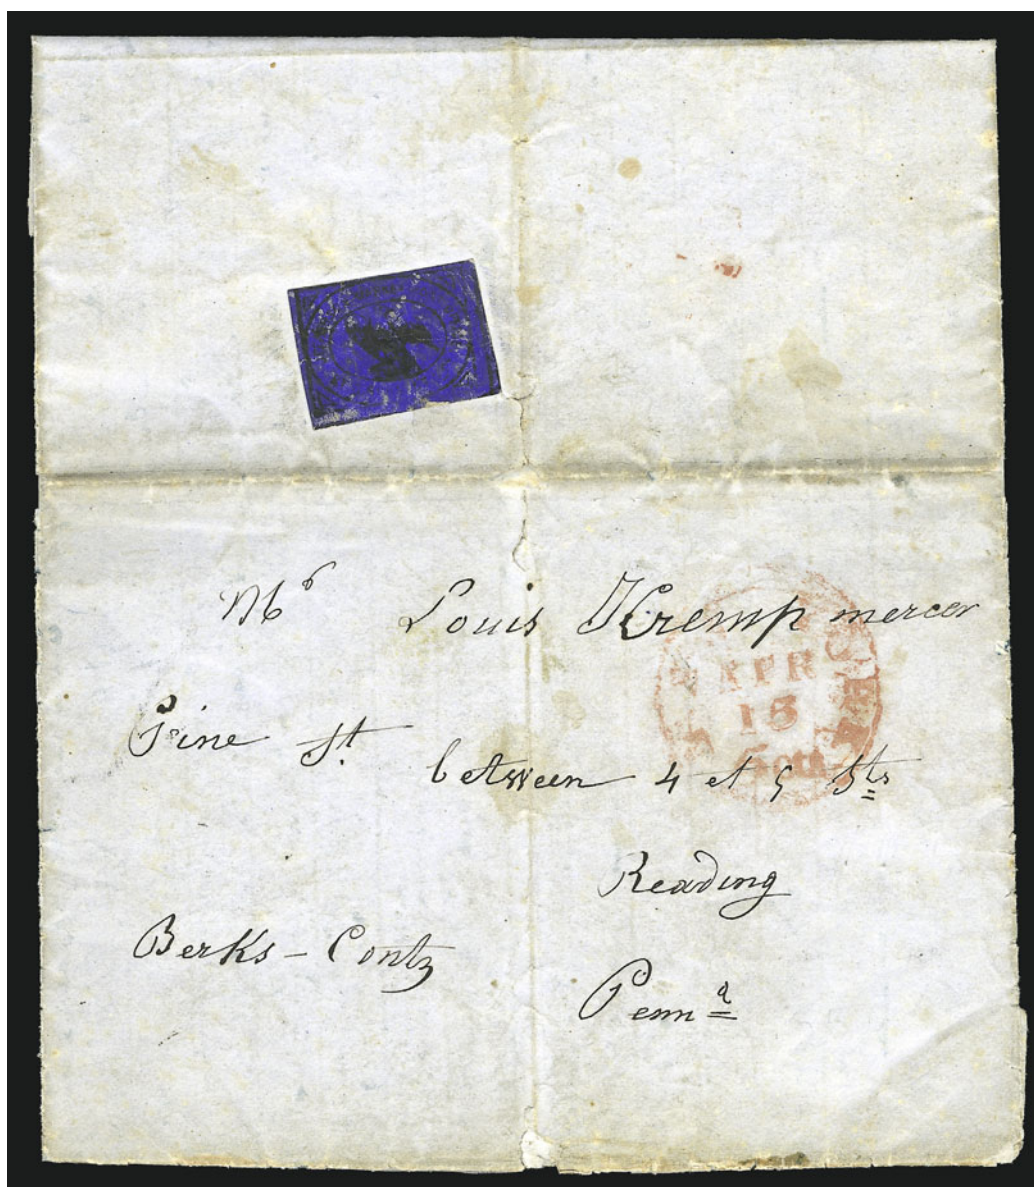 Mr Louis Kremp mercer
Pine St. between 4 et 5 Sts
Reading
Berks - Conty
Penna
APR
15
5cts